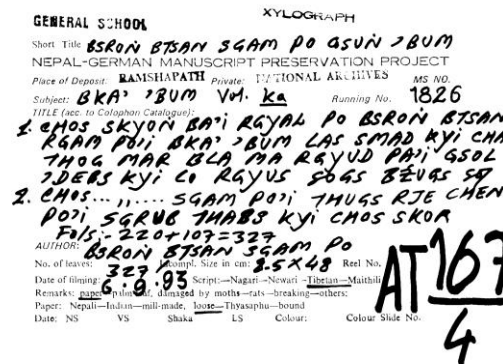 GENERAL SCHOOL
XYLOGRAPH
Short Title BSRON BTSAN SGAM PO GSUN 'BUM
NEPAL-GERMAN MANUSCRIPT PRESERVATION PROJECT
Place of Deposit: RAMSHAPATH Private: NATIONAL ARCHIVES MS NO.
Subject: BKA' 'BUM Vol. ka Running No. 1826
TITLE (acc. to Colophon Catalogue):
1. CHOS SKYON BA'I RGYAL PO BSRON BTSAN
RGAM PO'I BKA' 'BUM LAS SMAD KYI CHA
THOG MAR BLA MA RGYUD PA'I GSOL
'DEBS KYI LO RGYUS SOGS BZUGS SO
2. CHOS...,,.... SGAM PO'I THUGS RJE CHEN
PO'I SGRUB THABS KYI CHOS SKOR
Fols:- 220+107=327
AUTHOR: BSRON BTSAN SGAM PO
No. of leaves: 327 Incompl. Size in cm: 8.5X48 Reel No.
Date of filming: 6.9.93 Script:—Nagari—Newari—Tibetan—Maithili
Remarks: paper—palmleaf, damaged by moths—rats—breaking—others:
Paper: Nepali—Indian—mill-made, loose—Thyasaphu—bound
Date: NS VS Shaka LS Colour: Colour Slide No.
AT 167
4